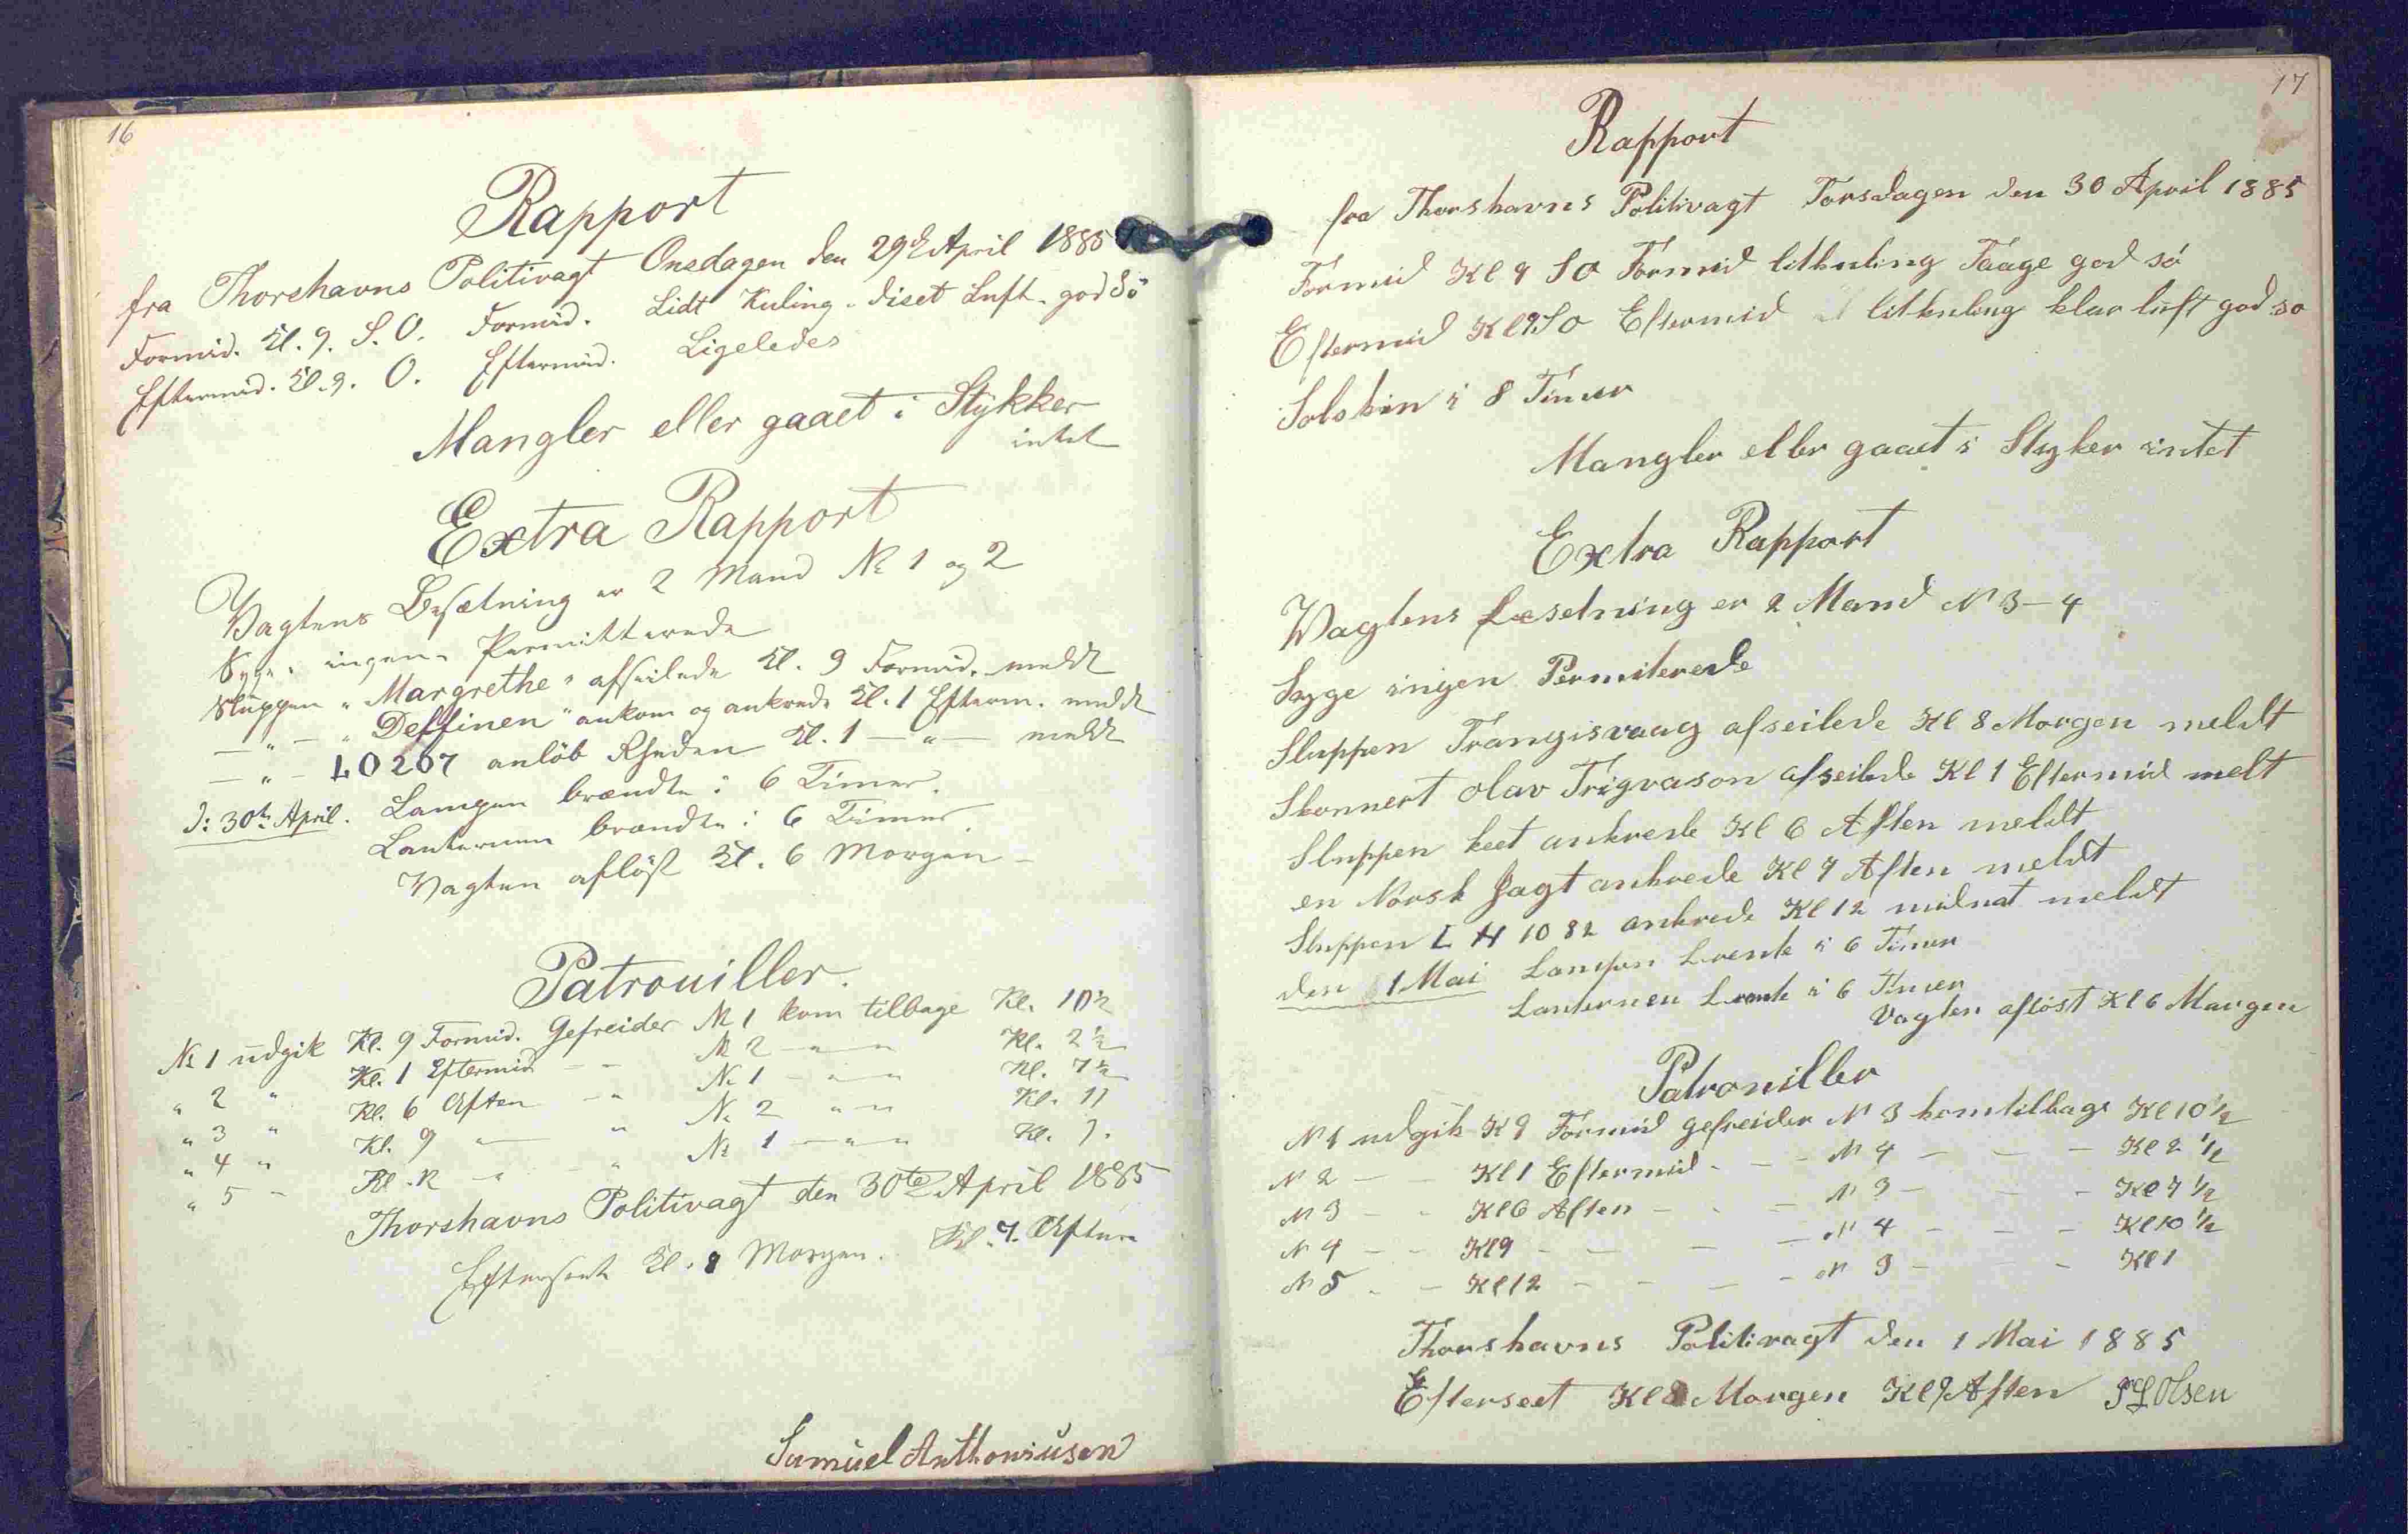 16
Rapport
fra Thorshavns Politivagt Onsdagen den 29de April 1885
Formid. Kl. 9. S. O. Formid. Lidt Kuling - diset Luft - god Sö
Eftermid. Kl. 9. O. Eftermid. Ligeledes
Mangler eller gaaet i Stykker
intet
Extra Rapport
Vagtens Besætning er 2 Mand No 1 og 2
Syge: ingen - Permitterede
Sluppen "Margrethe" afseilede Kl. 9 Formid. meldt
— " — "Delfinen" ankom og ankrede Kl. 1 Efterm. meldt
— " — LO 267 anlöb Rheden Kl. 1 — " — meldt
D: 30te April. Lampen brændte i 6 Timer.
Lanternen brændte i 6 Timer.
Vagten aflöst Kl. 6 Morgen —
Patrouiller.
No 1 udgik Kl. 9 Formid. Gefreider No 1 kom tilbage Kl. 10½
" 2 " Kl. 1 Eftermid — — No 2 — " — " Kl. 2½
" 3 " Kl. 6 Aften — " No 1 — " — " Kl. 7½
" 4 " Kl. 9 " — " No 2 " — " Kl. 11
" 5 — Kl. 12 — " — " No 1 — " — " Kl. 1.
Thorshavns Politivagt den 30te April 1885
Efterseet Kl. 8 Morgen. Kl. 7. Aften
Samuel Anthoniusen
17
Rapport
fra Thorshavns Politivagt Torsdagen den 30 April 1885
Formid Kl 9 SO Formid litkuling Taage god só
Eftermid Kl 9 SO Eftermid litkuling klar luft god so
Solskin i 8 Timer
Mangler eller gaaet i Styker intet
Extra Rapport
Vagtens Besetning er 2 Mand N 3 — 4
Syge ingen Permiterede
Sluppen Trangisvaag afseilede Kl 8 Morgen meldt
Skonnert Olav Trigvason afseilede Kl 1 Eftermid melt
Sluppen ankrede Kl 6 Aften meldt
en Norsk Jagt ankrede Kl 7 Aften meldt
Sluppen L H 1082 ankrede Kl 12 midnat meldt
den 1 Mai Lampen brente i 6 Timer
Lanternen brente i 6 Timer
Vagten afløst Kl 6 Morgen
Patrouiller
N 1 udgik K 9 Formid gefreider N 3 kom tilbage Kl 10½
N 2 — — Kl 1 Eftermid — — — N 4 — — — Kl 2½
N 3 — — Kl 6 Aften — — — N 3 — — — Kl 7½
N 4 — — Kl 9 — — — — N 4 — — — Kl 10½
N 5 — — Kl 12 — — — — N 3 — — Kl 1
Thorshavns Politivagt den 1 Mai 1885
Efterseet Kl 8 Morgen Kl 9 Aften Olsen